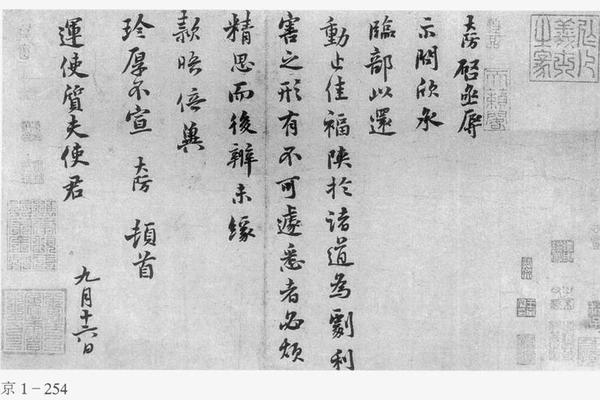 大防啟亟辱
示問欣承
臨部以還
動止佳福陝於諸道為劇利
害之形有不可遽悉者必煩
精思而後辦未緣
款晤倍冀
珍厚不宣 大防 頓首
運使質夫使君
九月十六日
京 1－254